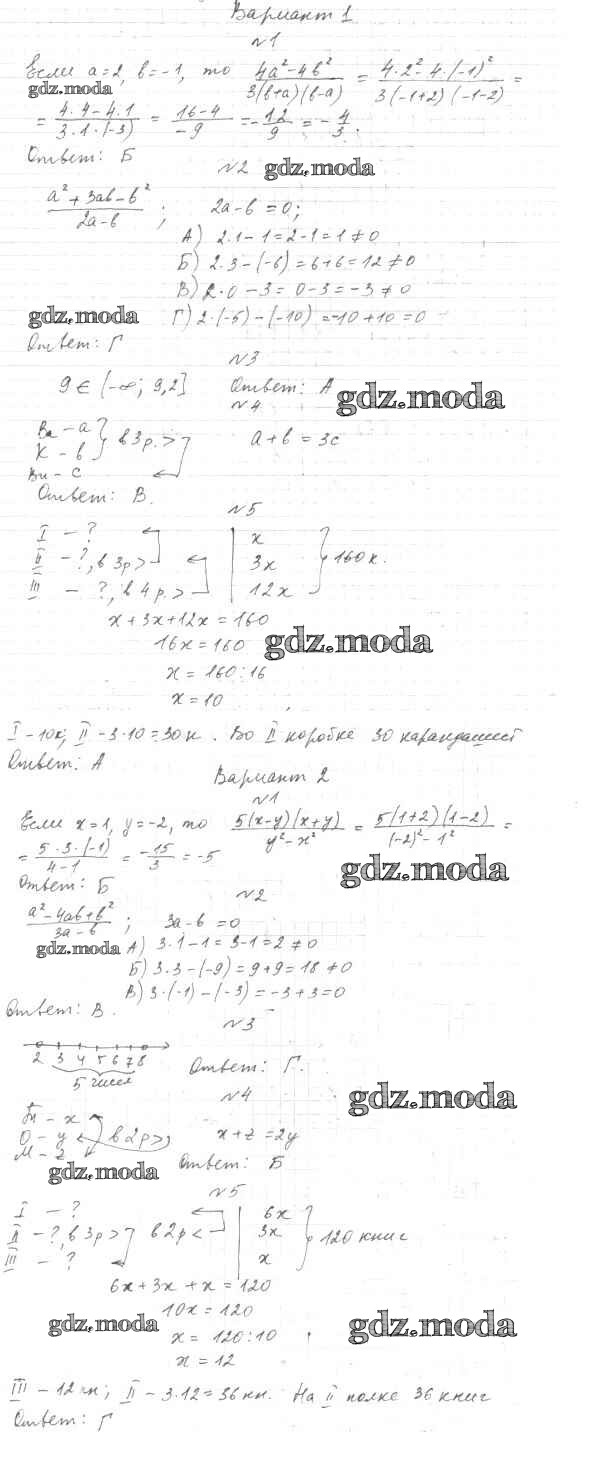 Вариант 1
№1
Если a=2, b=-1, то (4a²-4b²)/(3(b+a)(b-a)) = (4·2²-4·(-1)²)/(3(-1+2)(-1-2)) =
gdz.moda
= (4·4-4·1)/(3·1·(-3)) = (16-4)/(-9) = -12/9 = -4/3.
Ответ: Б
№2 gdz.moda
(a²+3ab-b²)/(2a-b) ; 2a-b=0;
А) 2·1-1=2-1=1≠0
Б) 2·3-(-6)=6+6=12≠0
В) 2·0-3=0-3=-3≠0
gdz.moda Г) 2·(-5)-(-10)=-10+10=0
Ответ: Г
№3
9∈(-∞; 9,2] Ответ: А
gdz.moda
№4
Ва - a } в 3 р. > a+b=3c
К - b
Ви - c
Ответ: В.
№5
I - ? | x } 160 к.
II - ?, в 3р > | 3x
III - ?, в 4 р. > | 12x
x+3x+12x=160
16x=160 gdz.moda
x=160:16
x=10
I - 10к; II - 3·10=30к. Во II коробке 30 карандашей
Ответ: А
Вариант 2
№1
Если x=1, y=-2, то (5(x-y)(x+y))/(y²-x²) = (5(1+2)(1-2))/((-2)²-1²) =
= (5·3·(-1))/(4-1) = -15/3 = -5
gdz.moda
Ответ: Б
№2
(a²-4ab+b²)/(3a-b) ; 3a-b=0
gdz.moda А) 3·1-1=3-1=2≠0
Б) 3·3-(-9)=9+9=18≠0
В) 3·(-1)-(-3)=-3+3=0
Ответ: В.
№3
2 3 4 5 6 7 8
5 чисел
Ответ: Г.
№4 gdz.moda
О - y в 2р > ; x+z=2y
М - z
gdz.moda Ответ: Б
№5
I - ? | 6x } 120 книг
II - ?, в 3р > в 2р < | 3x
III - ? | x
6x+3x+x=120
gdz.moda 10x=120 gdz.moda
x=120:10
x=12
III - 12 кн; II - 3·12=36 кн. На II полке 36 книг
Ответ: Г